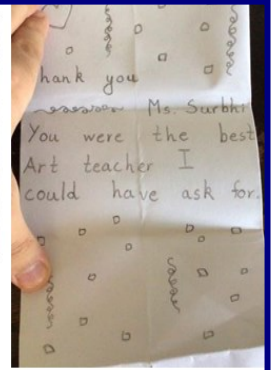 Thank you
Ms. Surbhi
You were the best
Art teacher I
could have ask for.